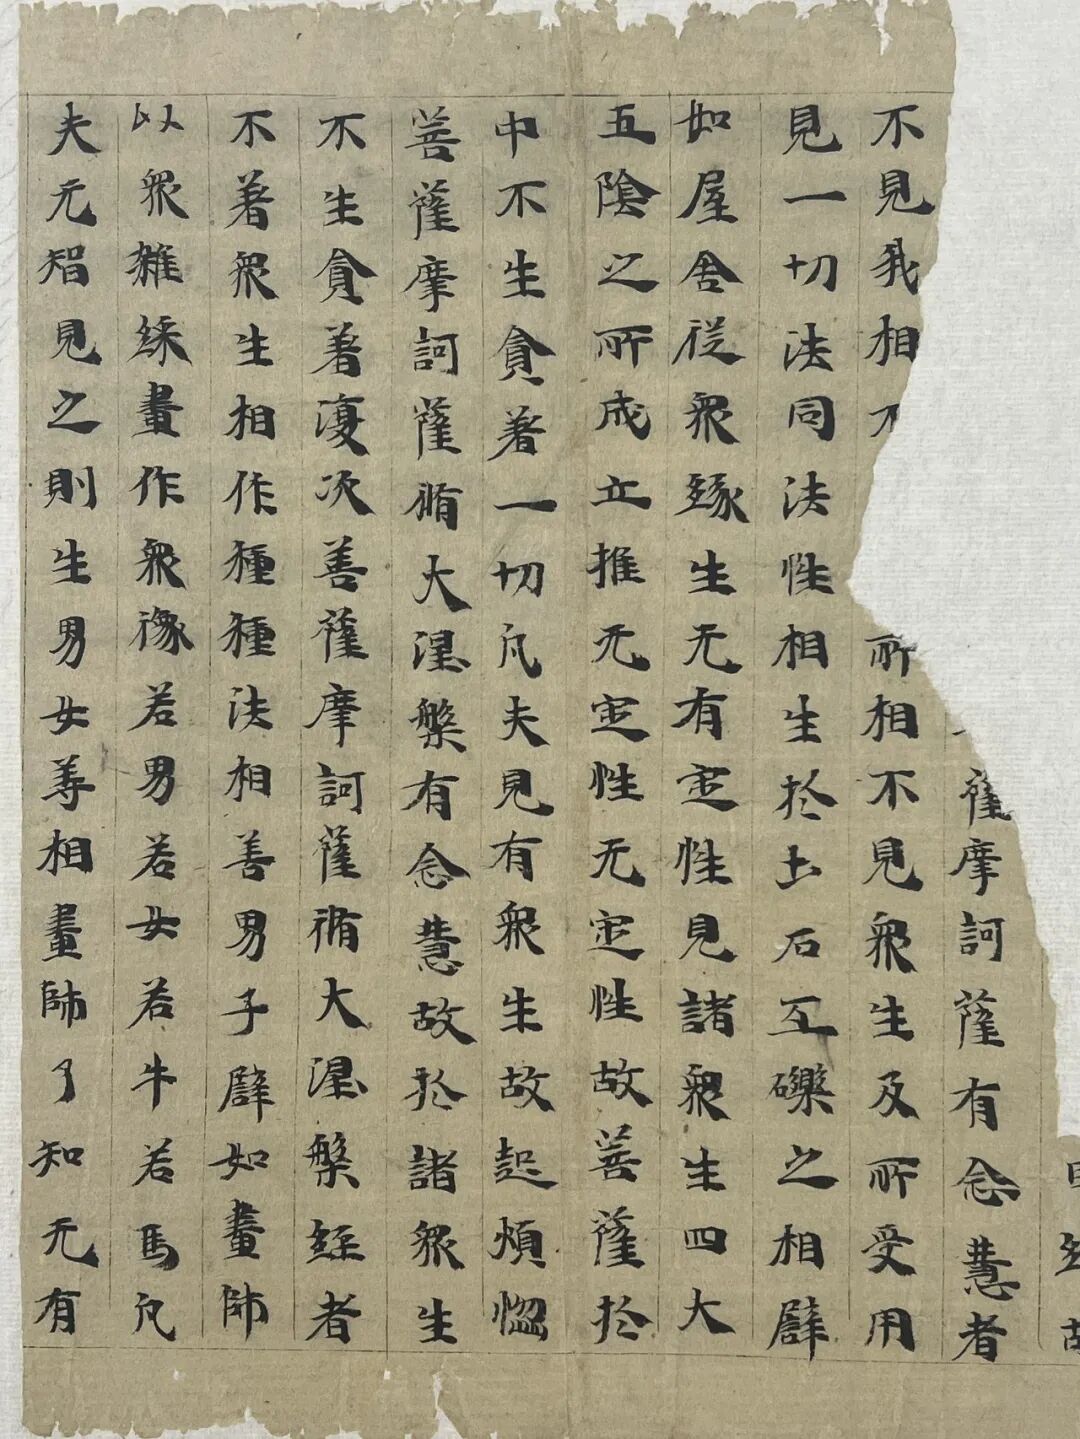 薩摩訶薩有念慧者
不見我相不所相不見衆生及所受用
見一切法同法性相生於土石瓦礫之相譬
如屋舍從衆緣生无有定性見諸衆生四大
五陰之所成立推无定性无定性故菩薩於
中不生貪著一切凡夫見有衆生故起煩惱
菩薩摩訶薩脩大涅槃有念慧故於諸衆生
不生貪著復次善薩摩訶薩脩大涅槃經者
不著衆生相作種種法相善男子譬如畫師
以衆雜綵畫作衆像若男若女若牛若馬凡
夫无智見之則生男女等相畫師了知无有